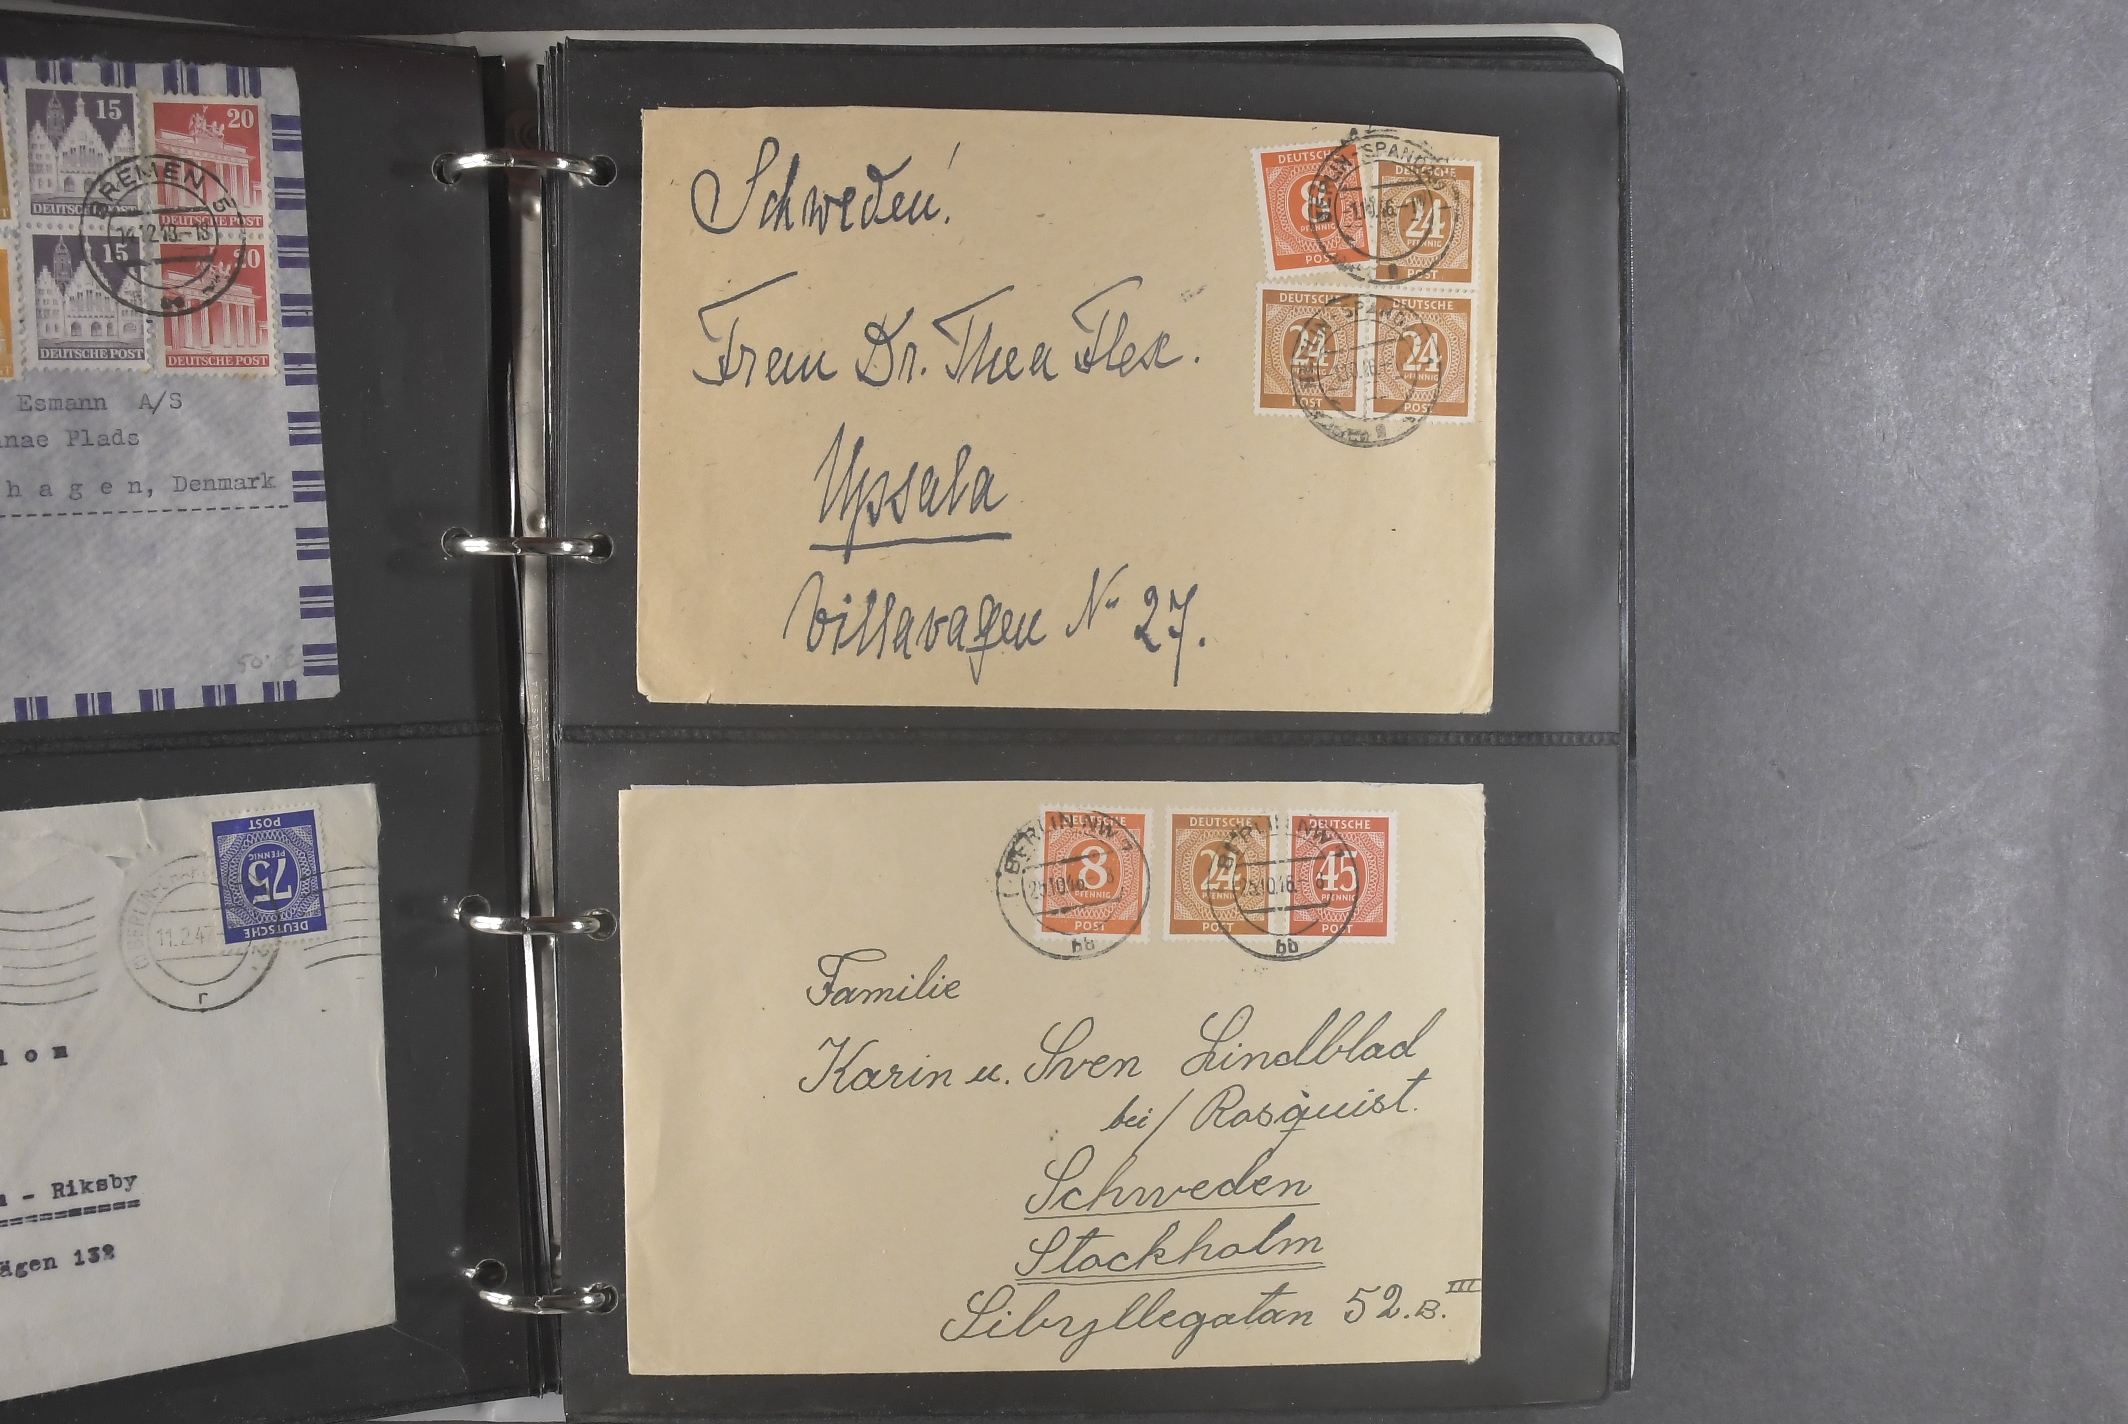 15
20
DEUTSCHE POST
DEUTSCHE POST
BREMEN 5
15
20
DEUTSCHE POST
DEUTSCHE POST
Esmann A/S
nae Plads
hagen, Denmark
DEUTSCHE
75
PFENNIG
POST
11.2.47
r
lom
- Riksby
ägen 132
Schweden!
Frau Dr. Thea Flex.
Upsala
Villavagen No 27.
DEUTSCHE
8
PFENNIG
POST
DEUTSCHE
24
PFENNIG
POST
BERLIN-SPANDAU
DEUTSCHE
24
PFENNIG
POST
DEUTSCHE
24
PFENNIG
POST
DEUTSCHE
8
PFENNIG
POST
DEUTSCHE
24
PFENNIG
POST
DEUTSCHE
45
PFENNIG
POST
BERLIN NW 7
25.10.46
bb
BERLIN NW 7
25.10.46
bb
Familie
Karin u. Sven Lindblad
bei/ Rosquist.
Schweden
Stockholm
Sibryllegatan 52.B.III